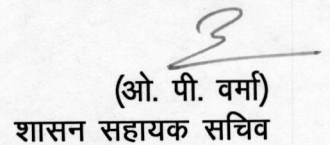 (ओ. पी. वर्मा)
शासन सहायक सचिव